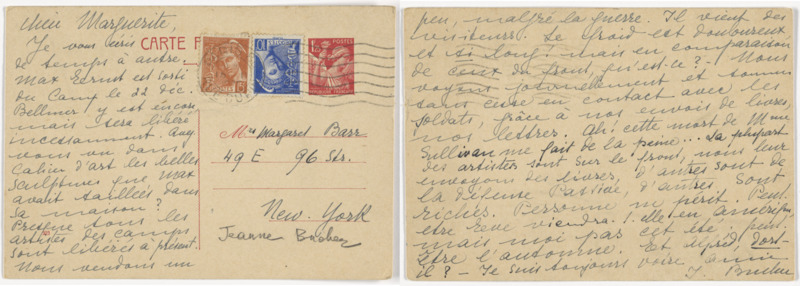 Chère Marguerite,
Je vous écris
de temps à autre.
Max Ernst est sorti
du Camp le 22 déc.
Bellmer y est encore
mais sera libéré
incessamment. Avez
vous vu dans
Cahier d'art les belles
sculptures que Max
avait taillées dans
sa maison?
Presque tous les
artistes des camps
sont libérés à présent.
Nous vendons un
CARTE P
POSTES
Mrs Margaret Barr
49 E 96 Str.
New. York
Jeanne Bucher
peu, malgré la guerre. Il vient des
visiteurs. Le froid est douloureux
et si long! mais en comparaison
de ceux du front, qu'est-ce? - Nous
voyons journellement et sommes
sans cesse en contact avec les
soldats, grâce à nos envois de livres,
nos lettres. Ah! cette mort de Mme
Sullivan me fait de la peine... La plupart
des artistes sont sur le front, nous leur
envoyons des livres, d'autres sont de
la défense Passive, d'autres sont
Personne ne périt. Peut
être Eve viendra-t-elle en Amérique
mais moi pas cet été, peut
être l'automne. Et Alfred, dort-
il? - Je suis toujours votre amie
J. Bucher